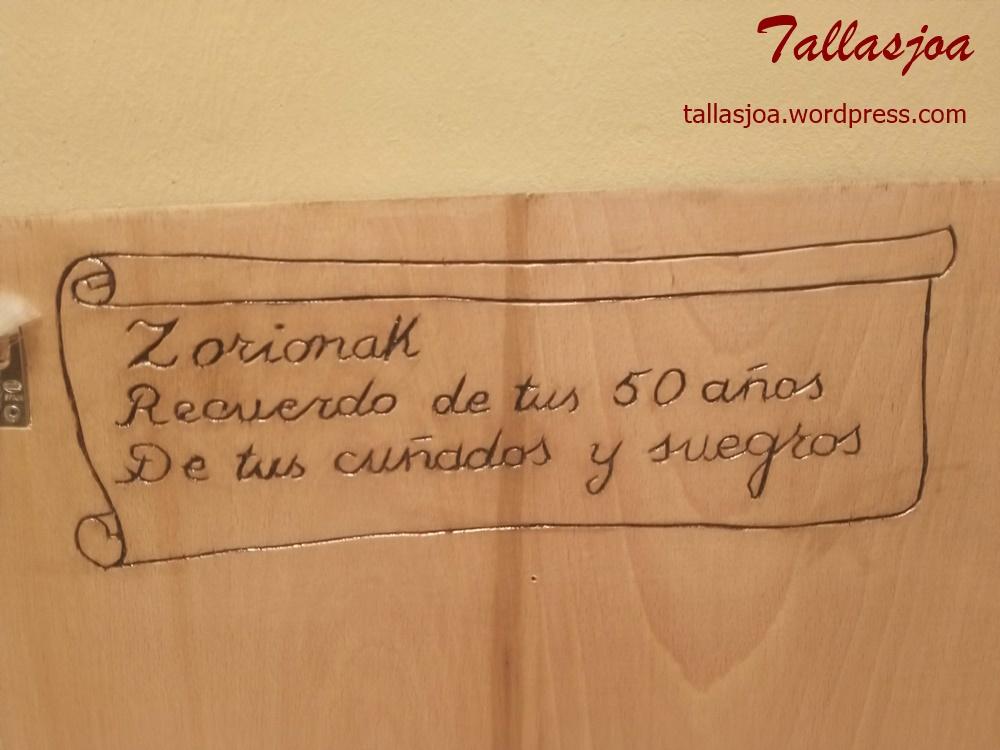 Tallasjoa
tallasjoa.wordpress.com
Zorionak
Recuerdo de tus 50 años
De tus cuñados y suegros